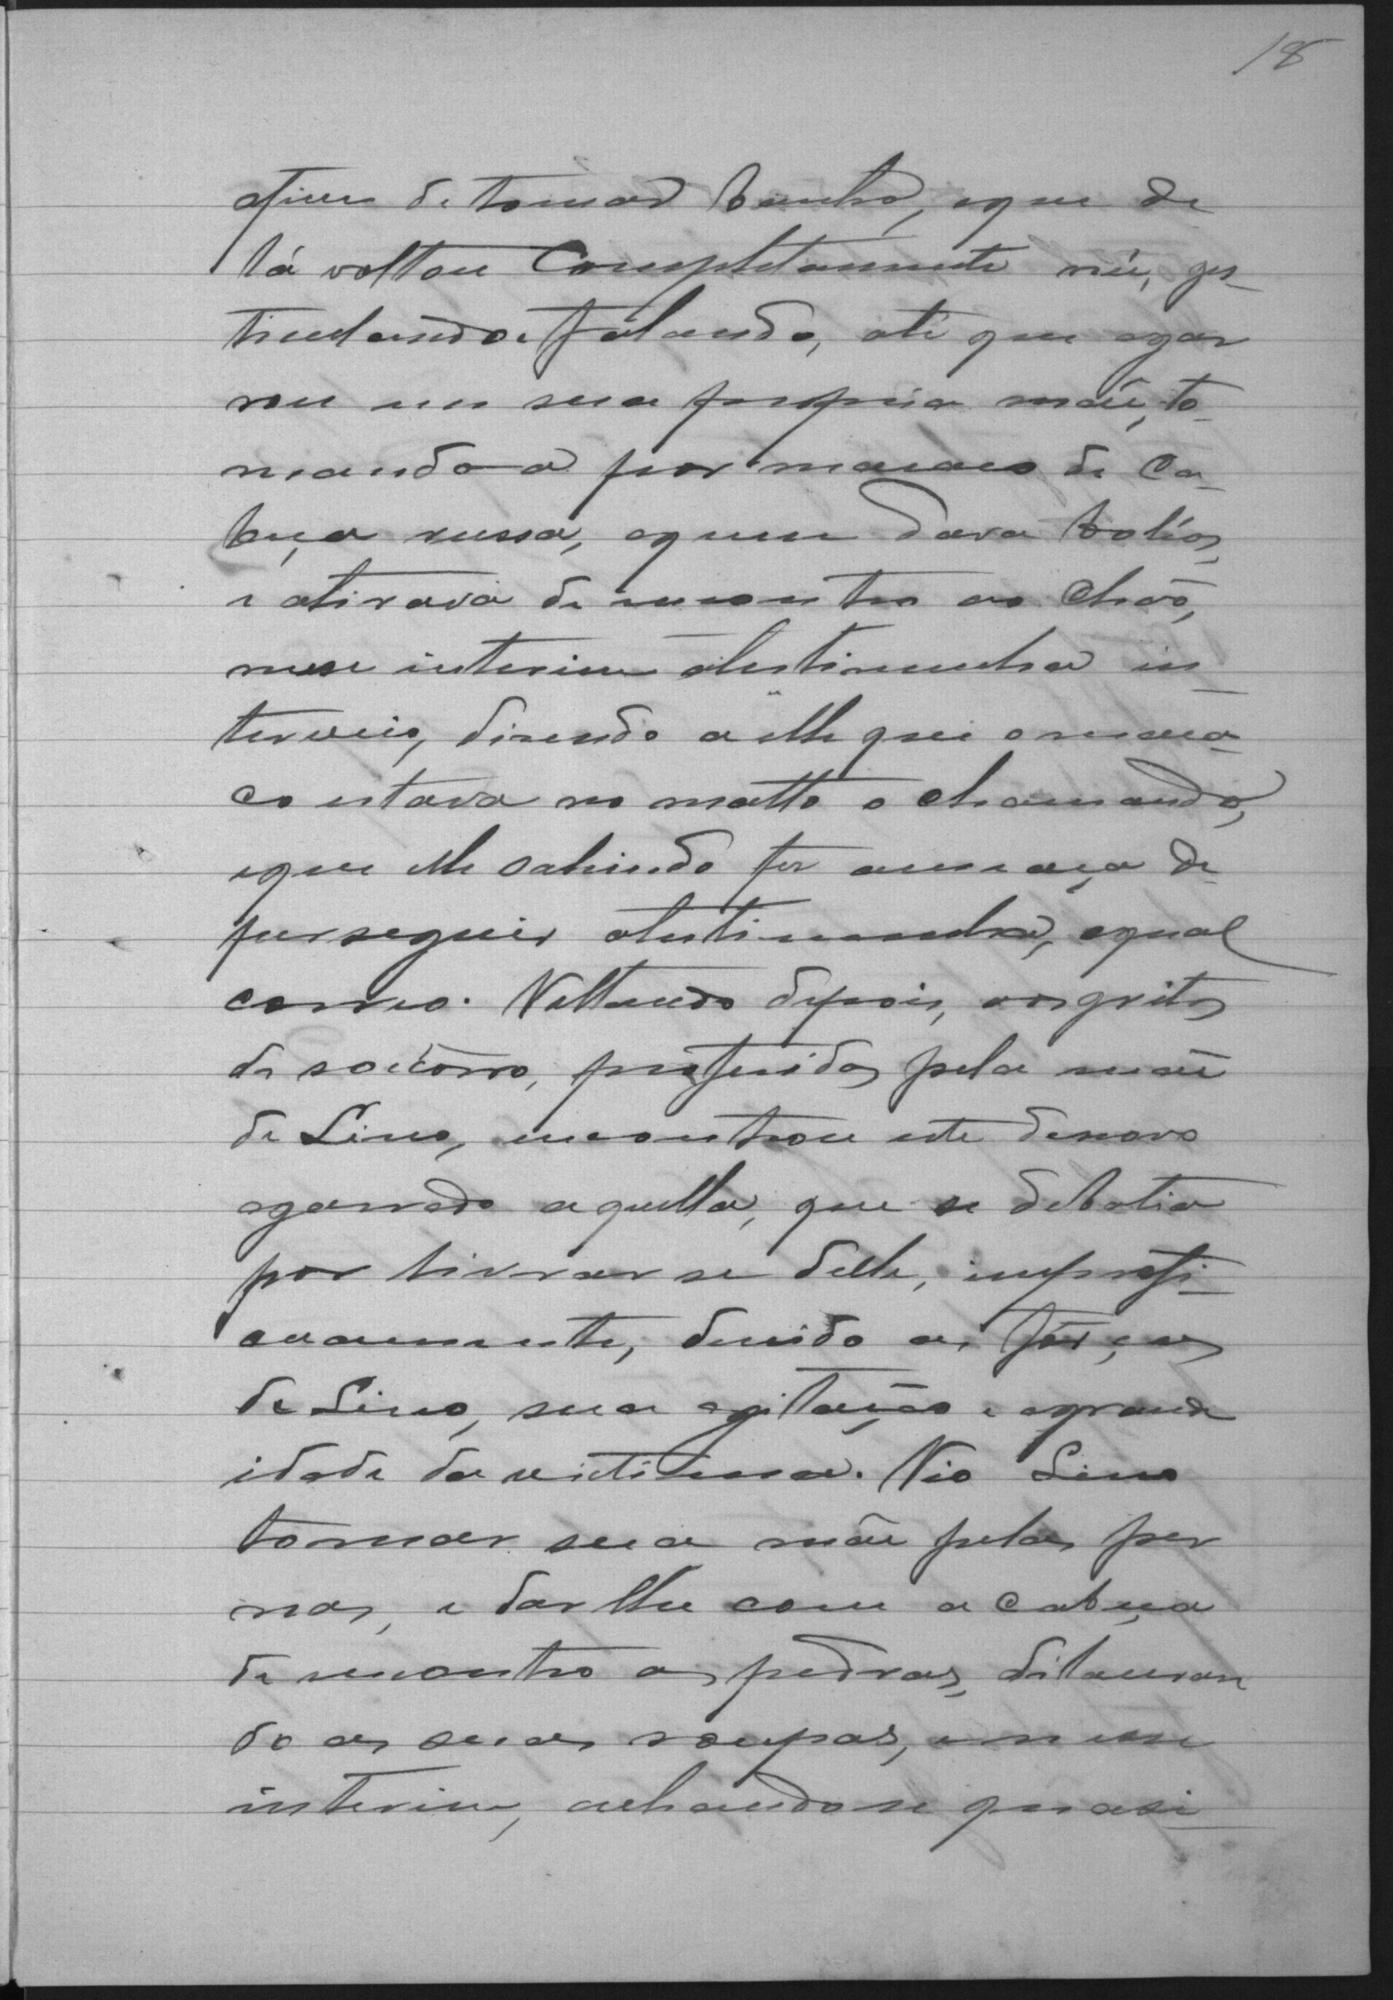 18
afim de tomar banho, e que de
lá voltou completamente nú, ges-
ticulando e falando, até que agar
rou em sua propria mãe, to-
mando a por macaco de ca-
beça russa, a quem dava bolos,
e atirava de encontro ao chão,
nesse interim a testimunha in
terveio, disendo a elle que o maca-
co estava no matto o chamando,
e que elle sahindo fez ameaça de
perseguir a testimunha, a qual
correo. Voltando depois, aos gritos
de soccorro, proferidos pela mãe
de Lino, encontrou este de novo
agarrado aquella, que se debatia
por livrar se delle, improfi-
cuamente, devido as forças
de Lino, sua agitação e a grande
idade da victima. Vio Lino
tomar sua mãe pelas per
nas, e dar lhe com a cabeça
de encontro as pedras, dilaceran
do as suas roupas, e n'esse
interim, achando se quasi